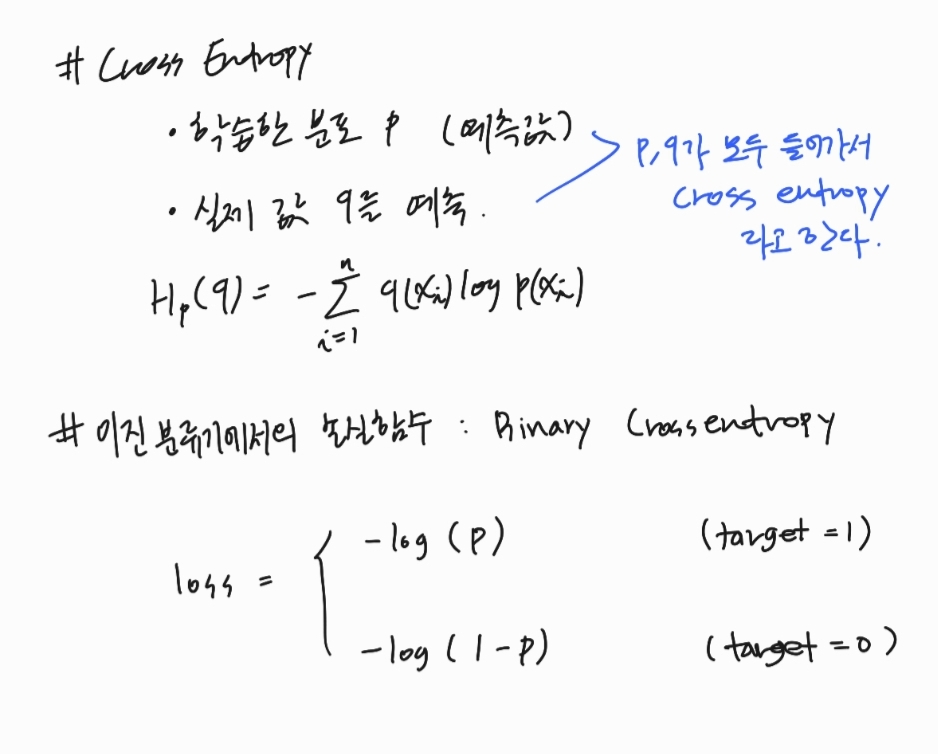 # Cross Entropy
• 학습한 분포 p (예측값)
• 실제 값 q를 예측.
p, q가 모두 들어가서
cross entropy
라고 한다.
Hₚ(q) = - ∑ᵢ₌₁ⁿ q(xᵢ) log p(xᵢ)
# 이진 분류기에서의 손실함수 : Binary Crossentropy
loss = { -log (p) (target = 1)
-log (1-p) (target = 0)